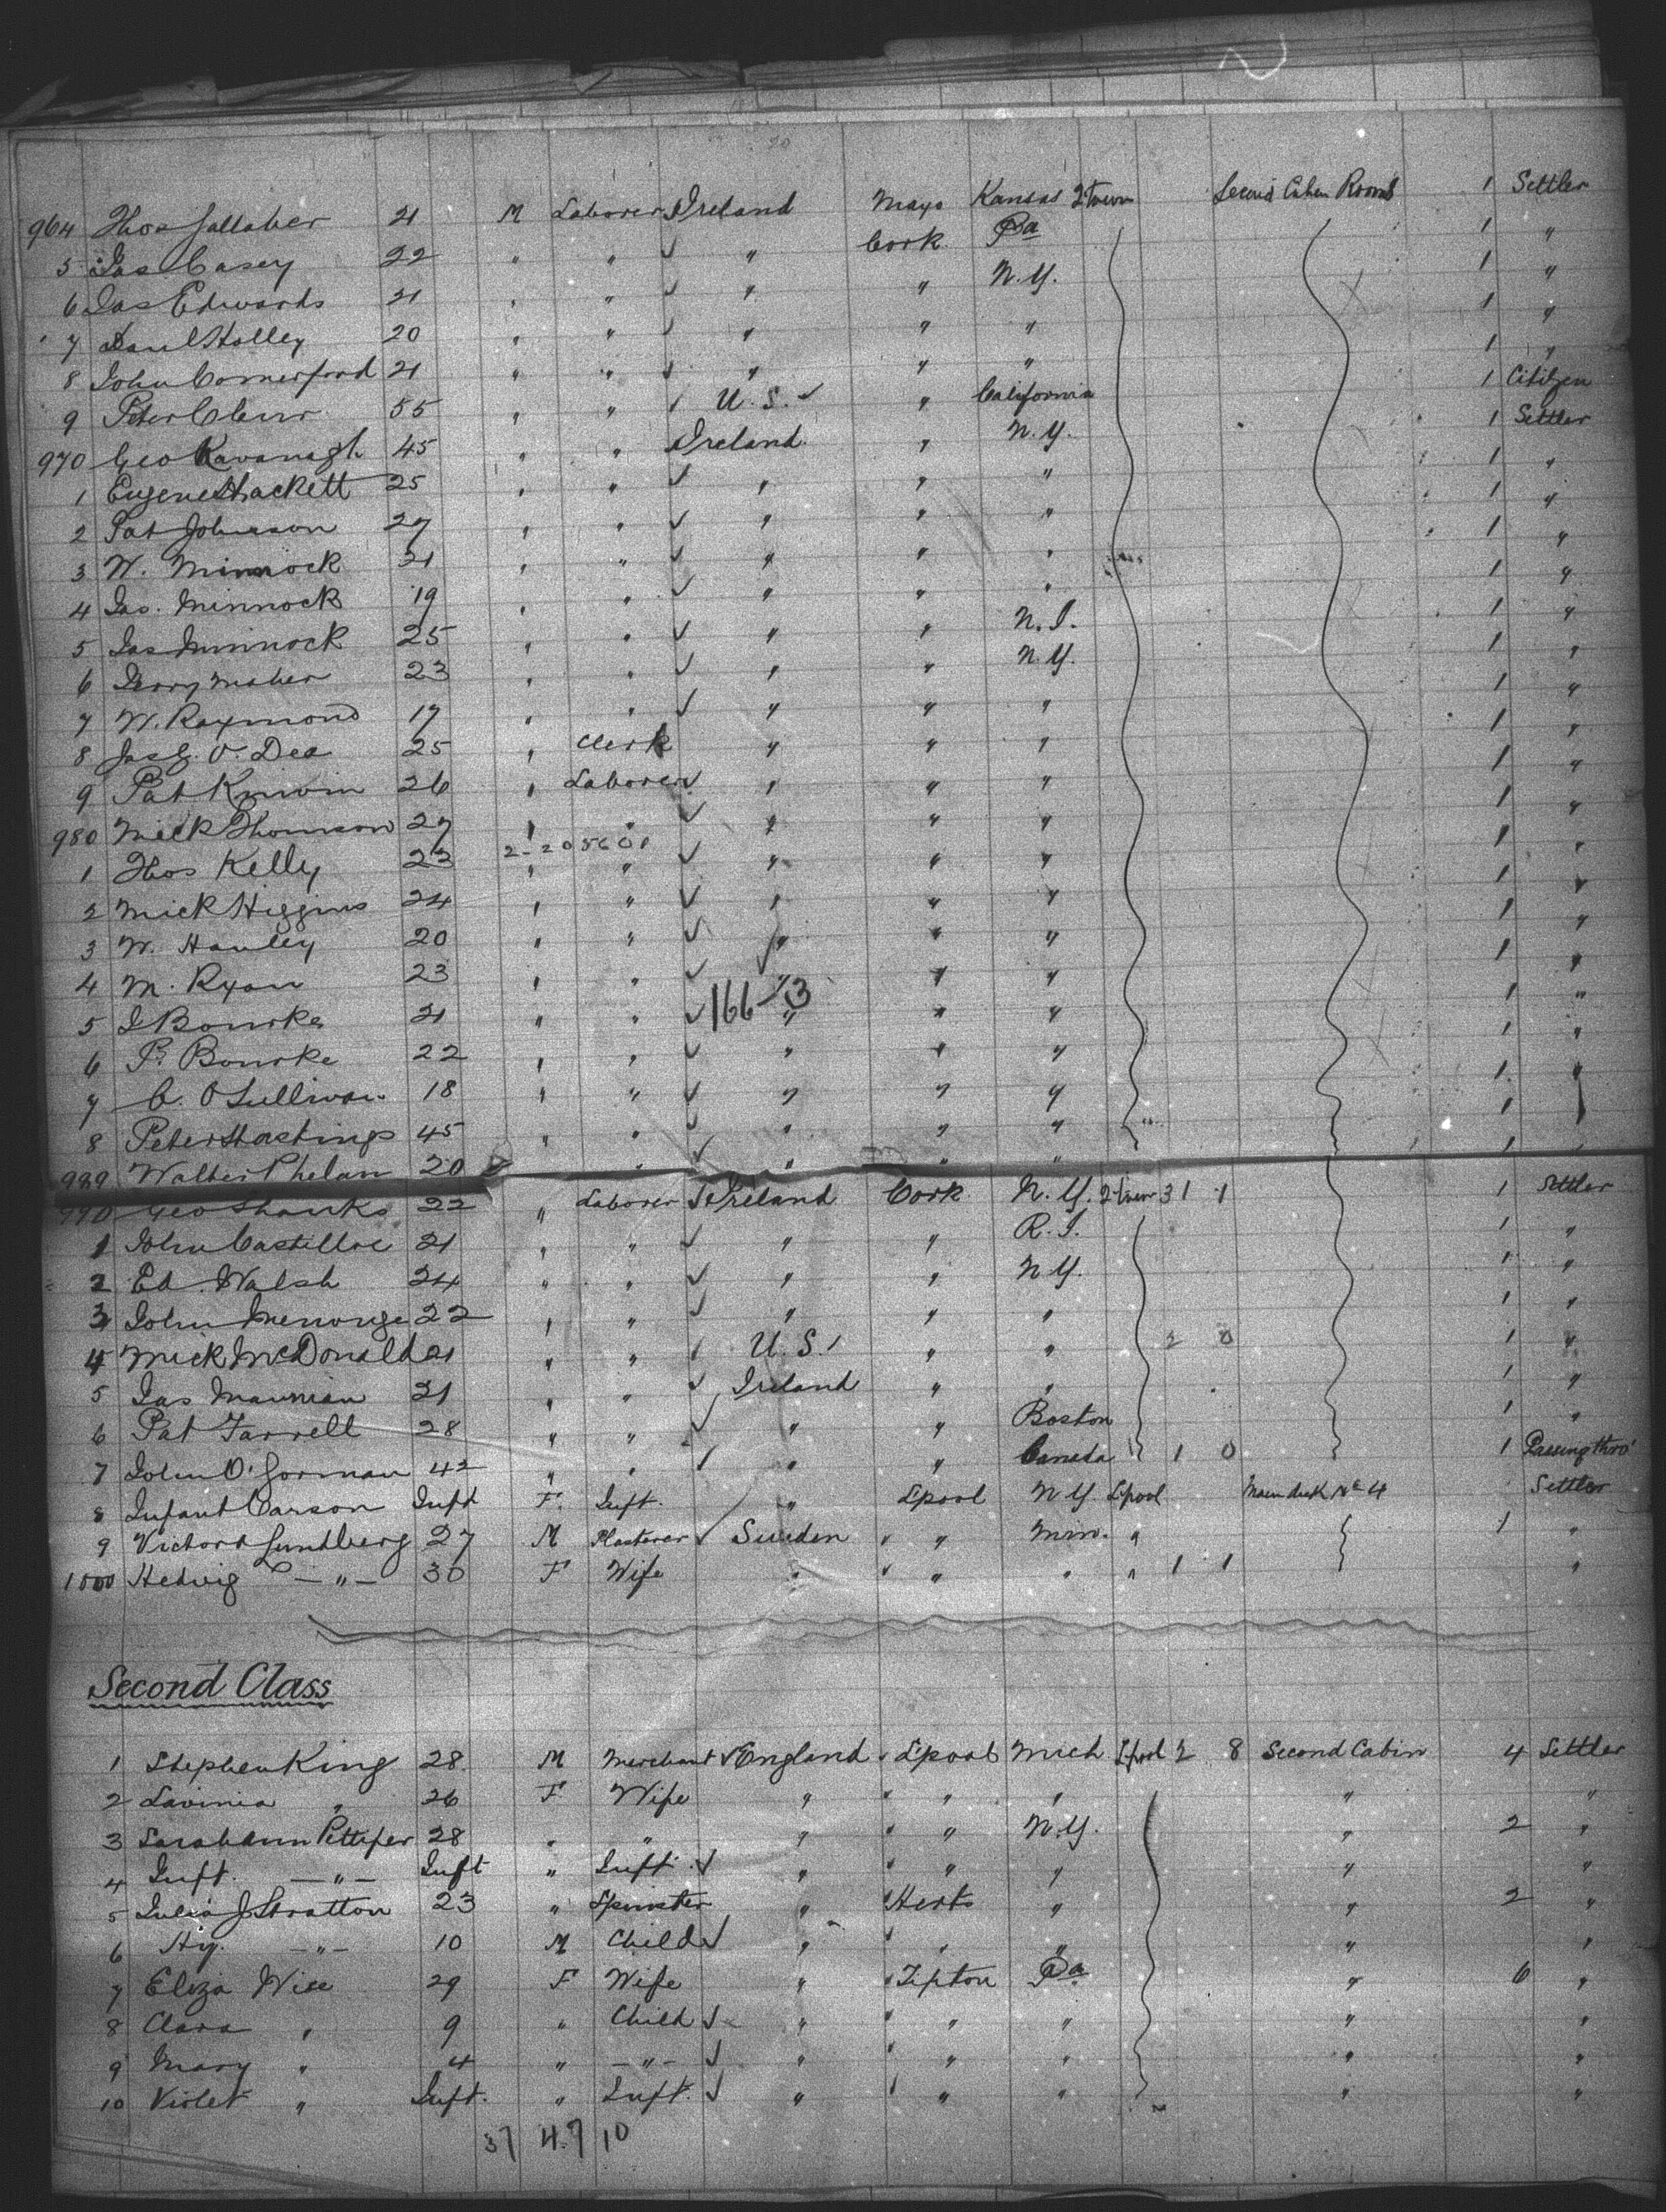 964 Thos Gallaher 21 M Laborer Ireland Mayo Kansas 2Town Second Cabin Rooms 1 Settler
5 Jas Casey 22 " " " Cork Pa 1 "
6 Jas Edwards 21 " " " " N.Y. 1 "
7 Danl Holley 20 " " " " " 1 "
8 John Comerford 21 " " " " " 1 "
9 Peter 55 " " U.S. " California 1 Citizen
970 Geo Kavanagh 45 " " Ireland " N.Y. 1 Settler
1 Eugene Hackett 25 " " " " " 1 "
2 Pat Johnson 27 " " " " " 1 "
3 W. Minnock 21 " " " " " 1 "
4 Jas. Minnock 19 " " " " " 1 "
5 Jas Minnock 25 " " " " N.J. 1 "
6 Jerry Maher 23 " " " " N.Y. 1 "
7 W. Raymond 17 " " " " " 1 "
8 Jas O'Dea 25 " Clerk " " " 1 "
9 Pat Kirwin 26 " Laborer " " " 1 "
980 Mick Thomson 27 " " " " " 1 "
2-205601
1 Thos Kelly 23 " " " " " 1 "
2 Mick Higgins 24 " " " " " 1 "
3 W. Hanley 20 " " " " " 1 "
4 M. Ryan 23 " " " " " 1 "
166-13
5 J Bourke 21 " " " " " 1 "
6 P. Bourke 22 " " " " " 1 "
7 C. O Sullivan 18 " " " " " 1 "
8 Peter Hastings 45 " " " " " 1 "
989 Walter Phelan 20 " " " " 1 "
990 Geo Shanks 22 " Laborer Ireland Cork N.Y. 2Town 31 1 1 Settler
1 John Castelloe 21 " " " " R.I. 1 "
2 Ed. Walsh 24 " " " " N.Y. 1 "
3 John 22 " " " " " 1 "
4 Mick McDonald 21 " " U.S. " " 2 0 1 "
5 Jas 21 " " Ireland " " 1 "
6 Pat Farrell 28 " " " " Boston 1 "
7 John O'Gorman 42 " " " " Canada 1 0 1 Passing thro'
8 Infant Carson Inft F. Inft. " Lpool N.Y. Lpool Main deck No 4 Settler
9 Victord Lundberg 27 M Plasterer Sweden " " Min. " 1 "
1000 Hedvig — " — 30 F Wife " " " " " 1 1 "
Second Class
1 Stephen King 28. M Merchant England Lpool Mich Lpool 2 8 Second Cabin 4 Settler
2 Lavinia " 26 F Wife " " " " " "
3 Sarah Ann Pettifer 28 " " " " " N.Y. " 2 "
4 Inft. — " — Inft " Inft. " " " " " "
5 Julia J Stratton 23 " Spinster " Herts " " 2 "
6 Hy. — " — 10 M Child " " " " "
7 Eliza Wise 29 F Wife " Tipton Pa " 6 "
8 Clara " 9 " Child " " " " "
9 Mary " 4 " — " — " " " " "
10 Violet " Inft. " Inft. " " " " "
37 4.7 10